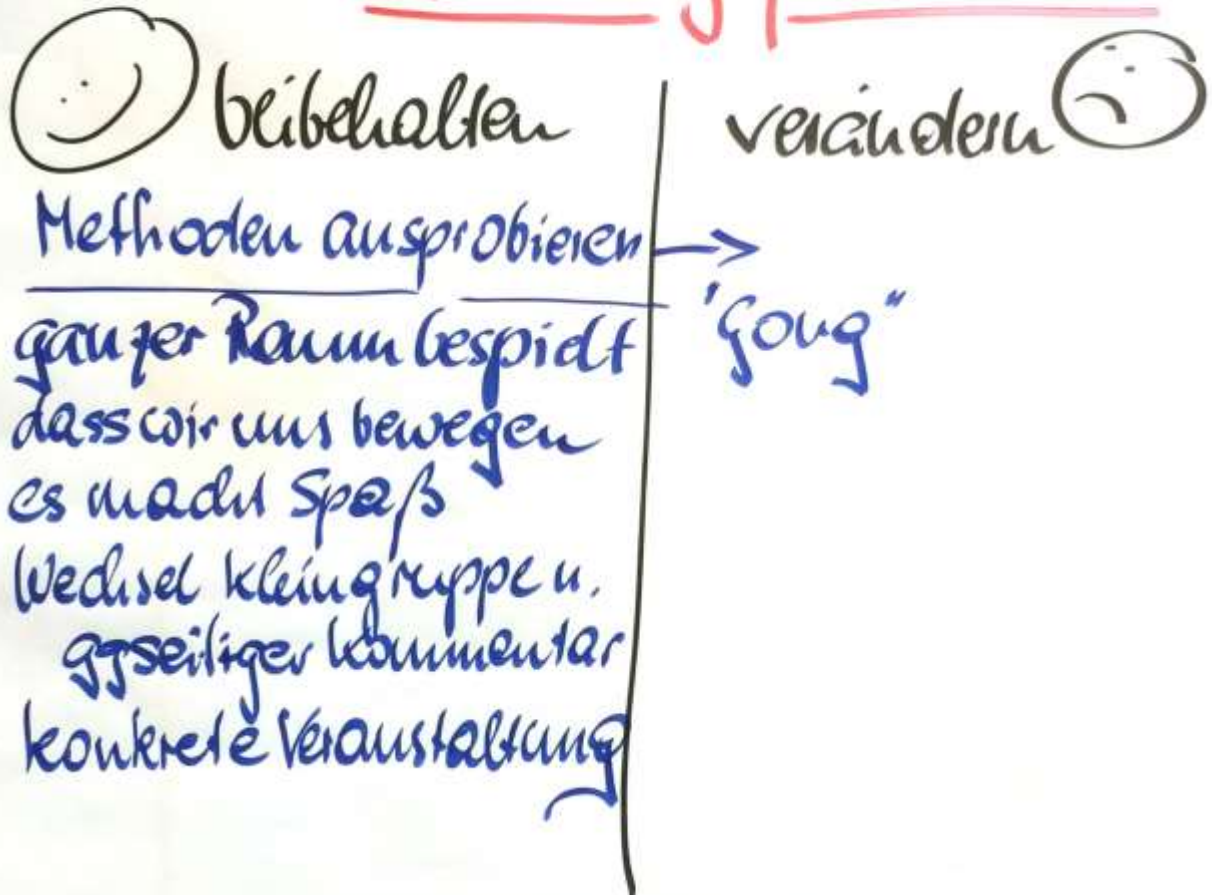 beibehalten
verändern
Methoden ausprobieren →
ganzer Raum bespielt
"Gong"
dass wir uns bewegen
es macht Spaß
Wechsel Kleingruppe u.
ggseitiger Kommentar
konkrete Veranstaltung